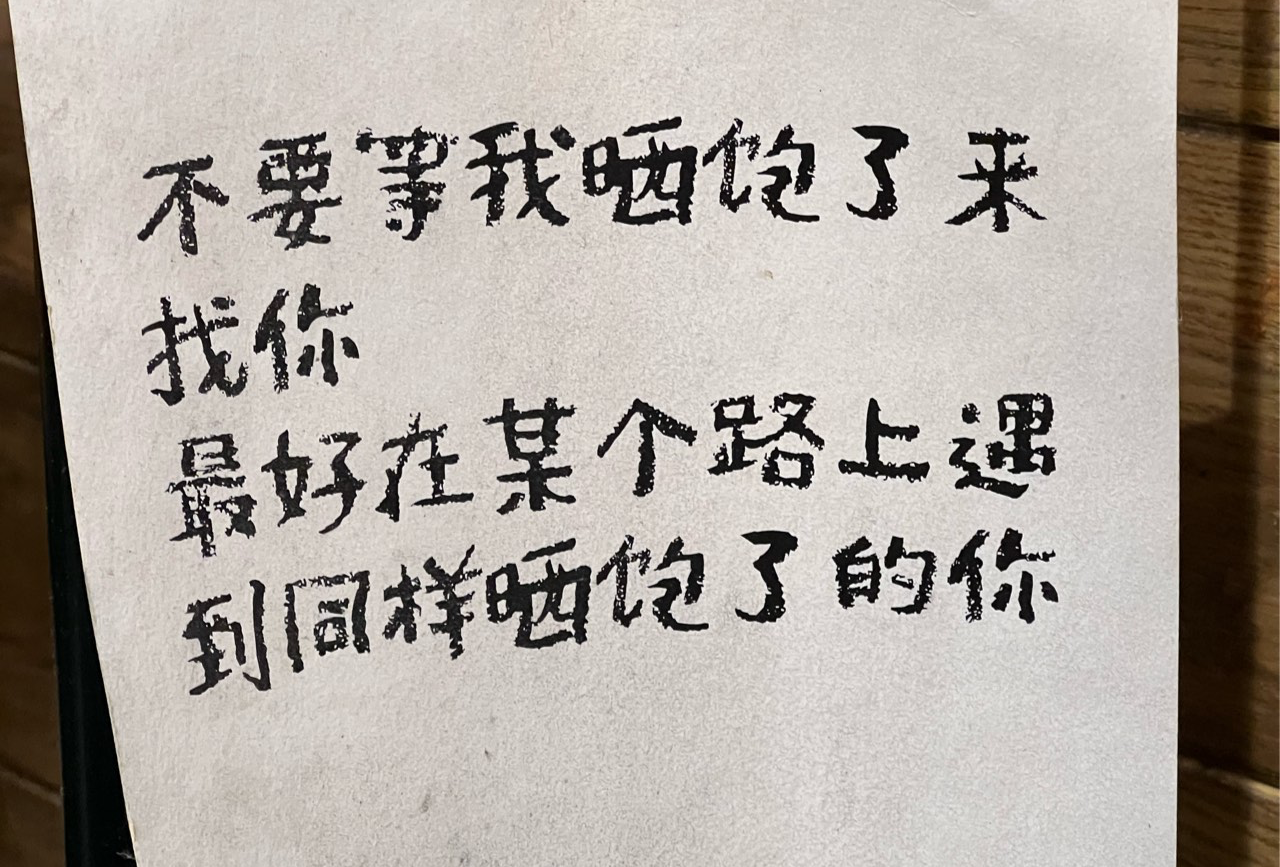 不要等我晒饱了来
找你
最好在某个路上遇
到同样晒饱了的你